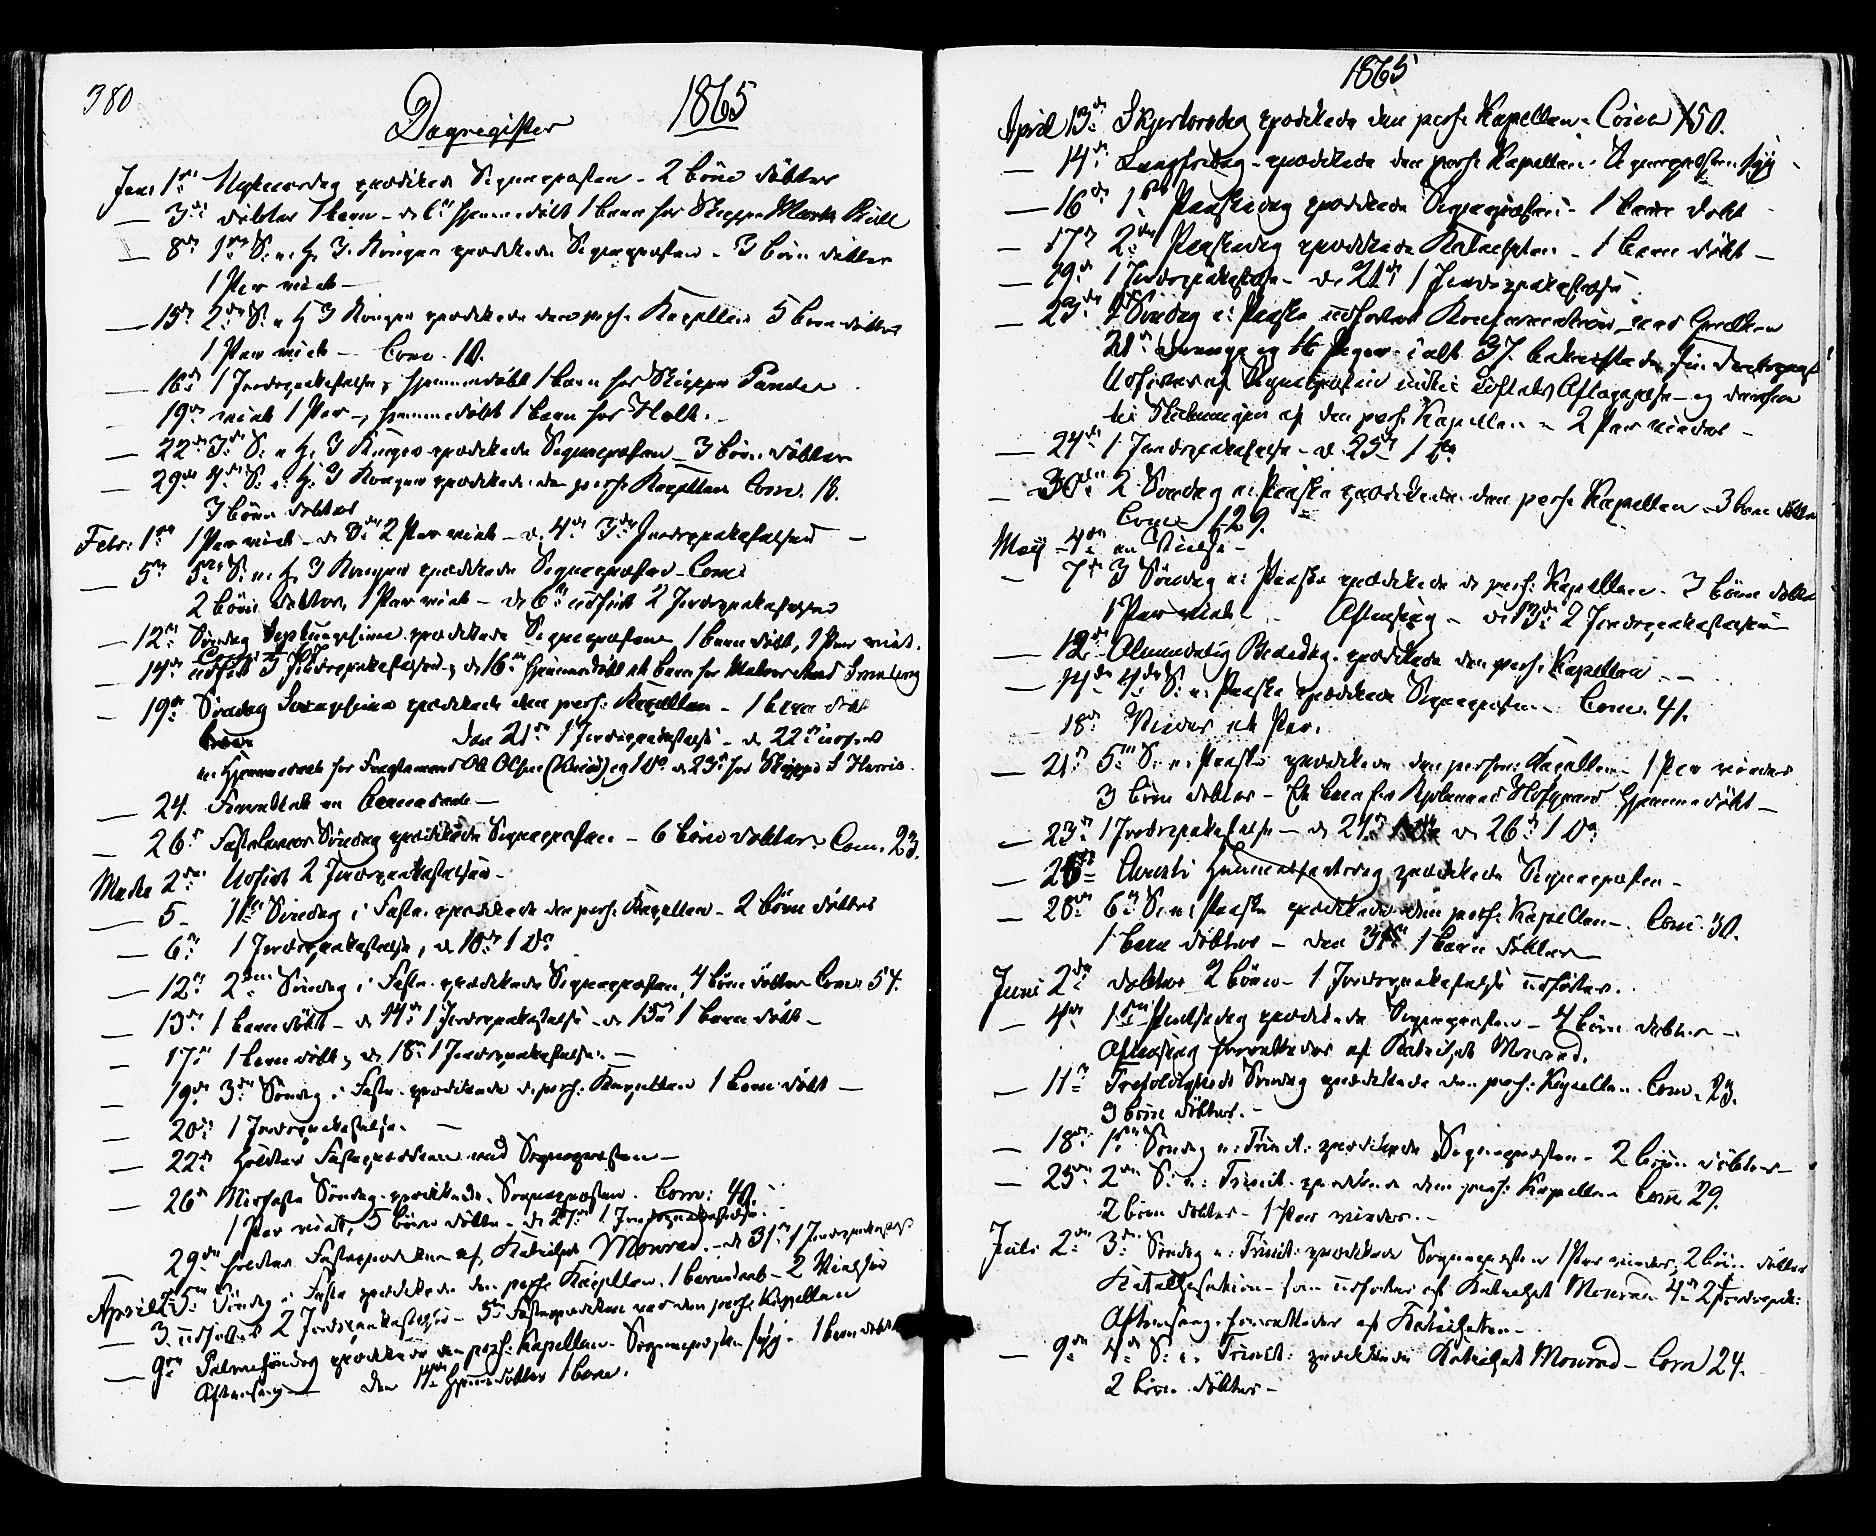 380
Dagregister 1865
Jan: 1ste Nytaarsdag prædikede Sognepræsten - 2 börn döbtes
— 3die döbtes 1 barn - d. 6te hjemmedöbt 1 barn hos Skipper
— 8de 1ste S. e. H. 3 Konger prædikede Sognepræsten - 3 börn döbtes
1 Par viet —
— 15de 2den S. e. H. 3 Konger prædikede den pers. Kapellan 5 börn döbtes
1 Par viet — Com. 10.
— 16de 1 Jordpaakastelse, hjemmedöbt 1 barn hos Skipper
— 19de viet 1 Par -, hjemmedöbt 1 barn hos Holt.
— 22de 3die S. e. H. 3 Konger prædikede Sognepræsten - 3 börn döbtes
— 29de 4de S. e. H. 3 Konger prædikede den pers. Kapellan Com. 18.
3 börn döbtes
Febr: 1ste 1 Par viet - d. 3die 2 Par viet - d. 4de 3 Jordpaakastelser —
— 5te 5te S. e. H. 3 Konger prædikede Sognepræsten - Com:
2 börn döbtes, 1 Par viet - d. 6te udført 2 Jordpaakastelser
— 12te Søndag Septuagesima prædikede Sognepræsten 1 barn döbt, 1 Par viet.
— 14de udført 3 Jordpaakastelser, d. 16de hjemmedöbt et barn for
— 19de Søndag Sexagesima prædikede den pers. Kapellan - 1 barn döbt
Den 21de 1 Jordpaakastelse - d. 22de
en hjemmedaab for Ole Olsen og 1 do d. 23de hos Skipper
— 24. Forrettet en barnedaab —
— 26de Fastelavns Søndag prædikede Sognepræsten - 6 börn döbtes. Com. 23.
Marts 2den Udført 2 Jordpaakastelser -
— 5- 1ste Søndag i Faste prædikede den pers. Kapellan - 2 börn döbtes
— 6te 1 Jordpaakastelse, d. 10de 1 do
— 12te 2den Søndag i Faste prædikede Sognepræsten, 4 börn döbtes Com. 54.
— 13de 1 barn döbt - d. 14de 1 Jordpaakastelse - d. 15de 1 barn döbt -
17de 1 barn döbt, d. 18de 1 Jordpaakastelse. —
— 19de 3die Søndag i Faste prædikede d. pers. Kapellan 1 barn döbt —
— 20de 1 Jordpaakastelse. —
— 22de Holdtes Fasteprædiken ved Sognepræsten —
— 26de Midfaste Søndag prædikede Sognepræsten. Com: 40.
1 Par viet, 5 börn döbte - d. 27de 1 Jordpaakastelse.
— 29de holdtes Fasteprædiken af Katechet Monrad. - d. 31te 1 Jordpaakastelse
April 2. 5te Søndag i Faste prædikede den pers. Kapellan. 1 barnedaab - 2 Vielser
— 3. udførtes 2 Jordpaakastelser - 5te Fasteprædiken ved den pers. Kapellan
— 9de Palmesøndag prædikede den pers. Kapellan - Sognepræsten syg - 1 barn döbt
Aftensang — Den 11te hjemmedöbtes 1 barn.
1865
April 13de Skjertorsdag prædikede den pers. Kapellan - Com 150.
— 14de Langfredag - prædikede den pers. Kapellan - Sognepræsten syg -
— 16de 1ste Paaskedag prædikede Sognepræsten - 1 barn döbt -
— 17de 2den Paaskedag prædikede Katecheten - 1 barn döbt —
— 19de 1 Jordpaakastelse - d. 21de 1 Jordpaakastelse
— 23de 1 Søndag e: Paaske udførtes Konfirmation ved
21 drenge og 16 Piger - i alt 37.
Udførtes af Sognepræsten
af den pers. Kapellan - 2 Par viedes -
— 24de 1 Jordpaakastelse - d. 25de 1 do
— 30te 2 Søndag e: Paaske prædikede den pers. Kapellan - 3 börn döbtes
Com 129.
Maij - 4de en Vielse -
— 7de 3 Søndag e: Paaske prædikede d. pers: Kapellan. 3 börn döbtes
1 Par viet. - Aftensang - d. 13de 2 Jordpaakastelser
— 12te Almindelig Bededag. prædikede den pers. Kapellan - -
— 14de 4de S. e: Paaske prædikede Sognepræsten - Com. 41.
— 18de Viedes et Par.
— 21de 5te S. e: Paaske prædikede den person: Kapellan - 1 Par viedes
3 börn döbtes - Et barn for Kjøbmand Hofgaard hjemmedöbt —
— 23de 1 Jordpaakastelse - d. 26de 1 do
— 25de Christi Himmelfartsdag prædikede Sognepræsten -
— 28de 6te S. e: Paaske prædikede den pers. Kapellan -. Com: 30.
1 barn döbtes - den 31te 1 barn döbtes
Juni 2den döbtes 2 börn - 1 Jordpaakastelse udførtes.
— 4de 1ste Pintsedag prædikede Sognepræsten - 4 börn döbtes -
Aftensang forrettedes af Katechet Monrad.
— 11te Trefoldigheds Søndag prædikede den pers: Kapellan - Com. 23.
3 börn döbtes. -
— 18de 1ste Søndag e: Trinit: prædikede Sognepræsten - 2 börn döbtes
— 25de 2den S. e: Trinit. prædikede den pers: Kapellan Com 29.
2 börn döbtes - 1 Par viedes. -
Juli 2den 3die Søndag e: Trinit: prædikede Sognepræsten 1 Par viedes, 2 börn döbtes
Katekisation - som udførtes af Katechet Monrad - 4de 2 Jordpaak:
Aftensang forrettedes af Katecheten -
— 9de 4de S. e. Trinit: prædikede Katechet Monrad - Com 24.
2 börn döbtes -